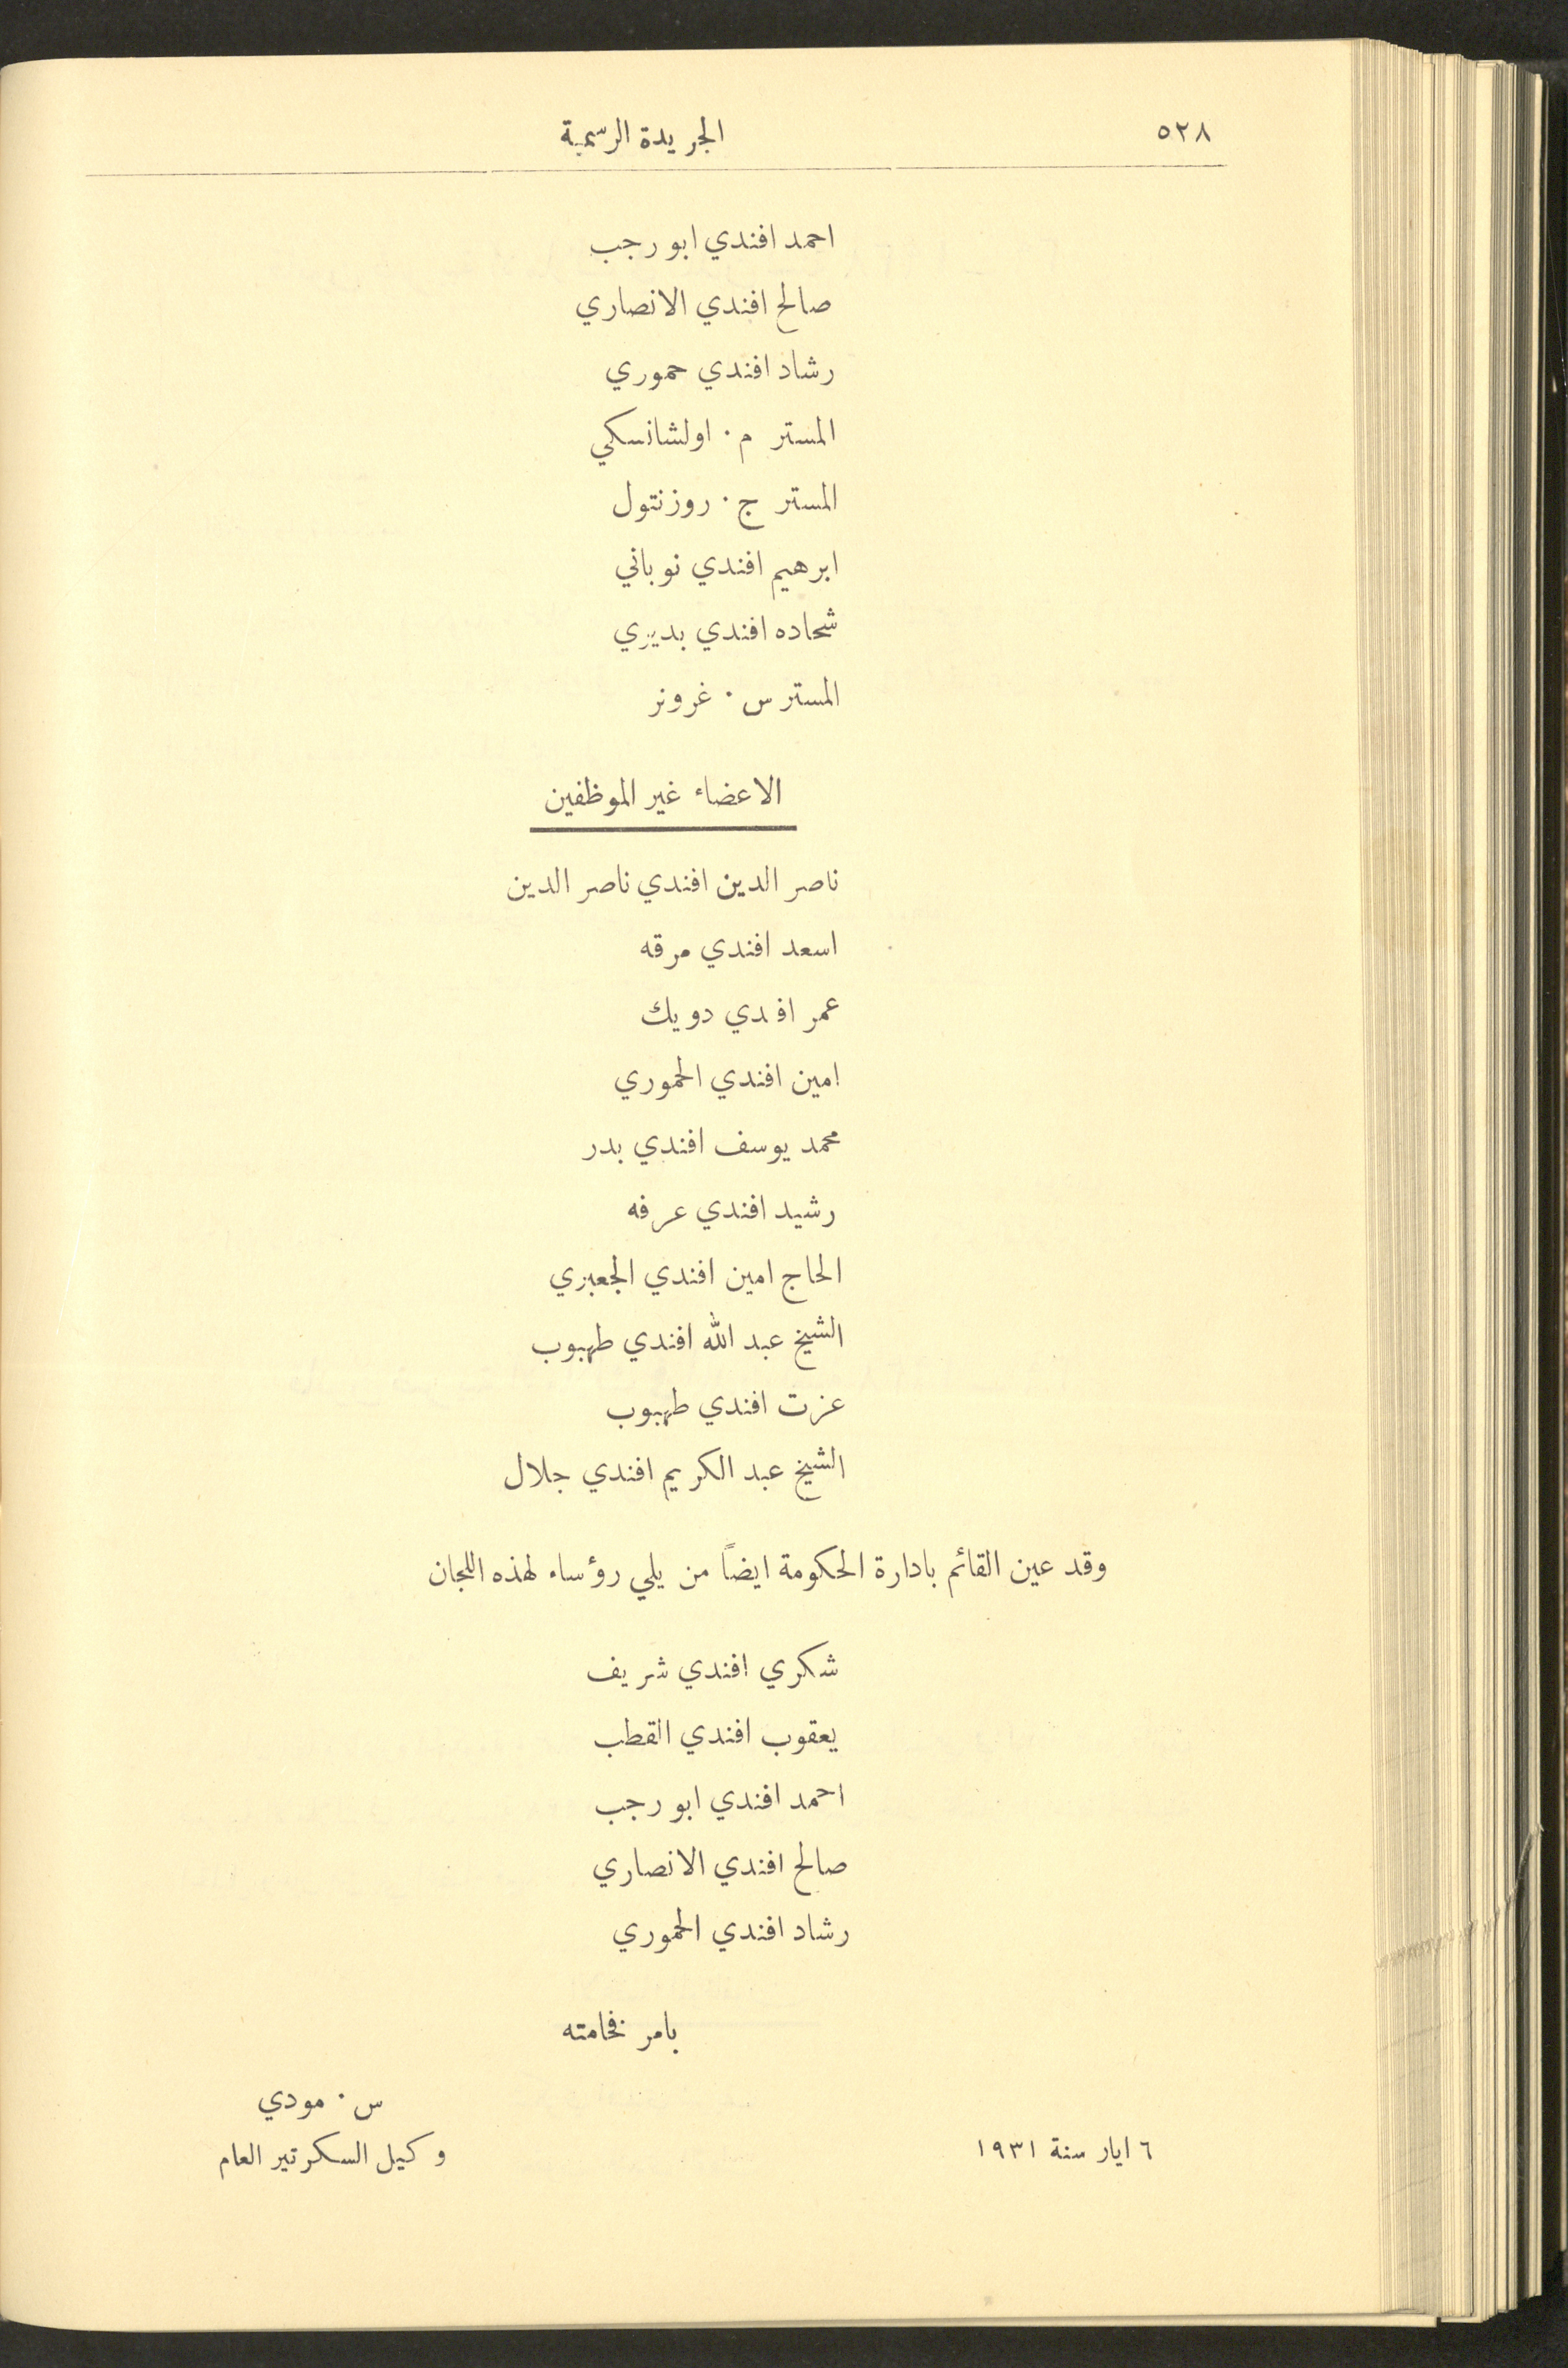 ٥٢٨
الجريدة الرسمية
احمد افندي ابو رجب
صالح افندي الانصاري
رشاد افندي حموري
المستر م. اولشانسكي
المستر ج. روزنتول
ابرهيم افندي نوباني
شحاده افندي بديري
المستر س. غرونر
الاعضاء غير الموظفين
ناصر الدين افندي ناصر الدين
اسعد افندي مرقه
عمر افدي دويك
امين افندي الحموري
محمد يوسف افندي بدر
رشيد افندي عرفه
الحاج امين افندي الجعبري
الشيخ عبد الله افندي طهبوب
عزت افندي طهبوب
الشيخ عبد الكريم افندي جلال
وقد عين القائم بادارة الحكومة ايضاً من يلي رؤساء لهذه اللجان
شكري افندي شريف
يعقوب افندي القطب
احمد افندي ابو رجب
صالح افندي الانصاري
رشاد افندي الحموري
بامر فخامته
س. مودي
٦ ايار سنة ١٩٣١
وكيل السكرتير العام